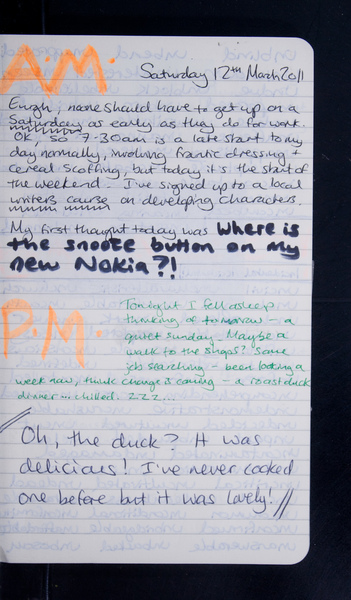 A.M.
Saturday 12th March 2011
Eurgh; none should have to get up on a
Saturday as early as they do for work.
OK, so 7.30am is a late start to my
day normally, involving frantic dressing +
cereal scoffing, but today it's the start of
the weekend. I've signed up to a local
writers course on developing characters.
My first thought today was where is
the snooze button on my
new Nokia?!
P.M.
Tonight I fell asleep
thinking of tomorrow - a
quiet Sunday. Maybe a
walk to the shops? Some
job searching - been looking a
week now, think change is coming - a roast duck
dinner... chilled. zzz...
Oh, the duck? It was
delicious! I've never cooked
one before but it was lovely! //